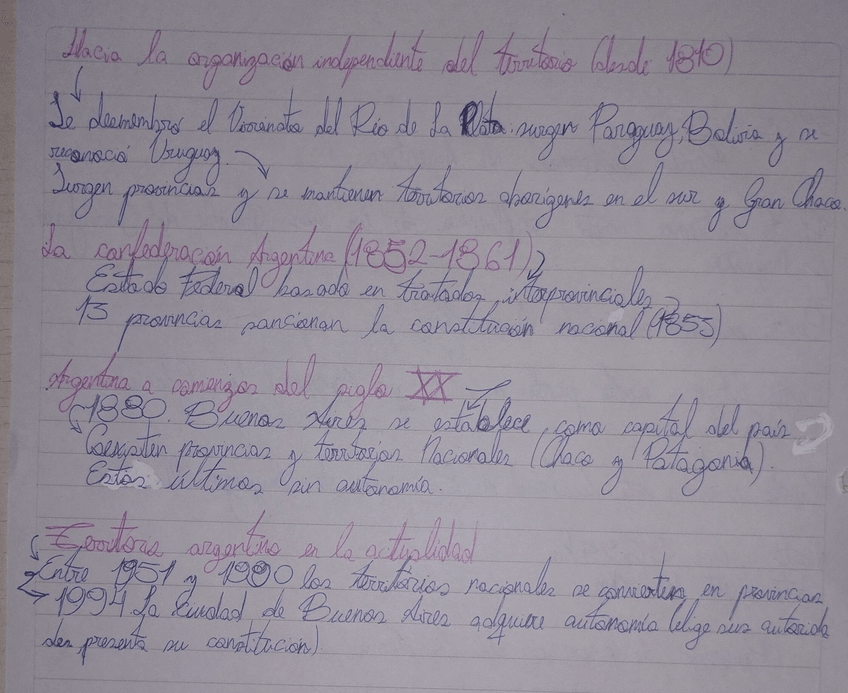 Hacia la organización independiente del territorio (desde 1810)
Se desmembró el Virreinato del Río de La Plata. surgen Paraguay, Bolivia y se
reconoció Uruguay.
Surgen provincias y se mantienen territorios aborígenes en el sur y Gran Chaco.
La confederación Argentina (1852-1861)
Estado Federal basado en tratados interprovinciales
13 provincias sancionan la constitución nacional (1853)
Argentina a comienzos del siglo XX
1880. Buenos Aires se establece como capital del país
Coexisten provincias y territorios Nacionales (Chaco y Patagonia).
Estos últimos sin autonomía.
Territorio argentino en la actualidad
Entre 1951 y 1990 los territorios nacionales se convierten en provincias
1994 La Ciudad de Buenos Aires adquiere autonomía (elige sus autorida
des, presenta su constitución)